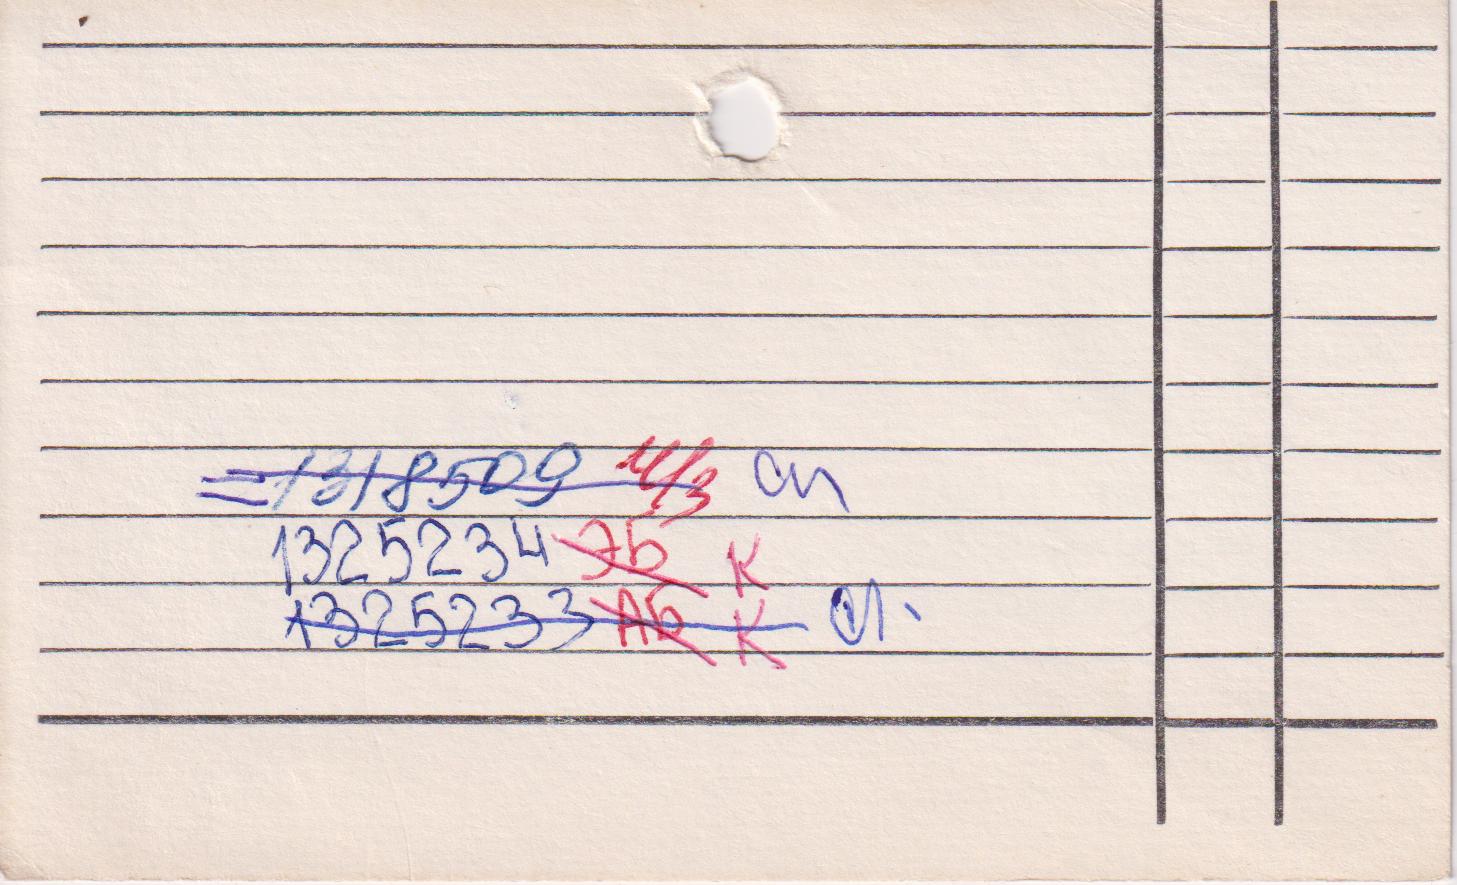 1318509 ч/з сп
1325234 Аб К
1325233 Аб К сп.